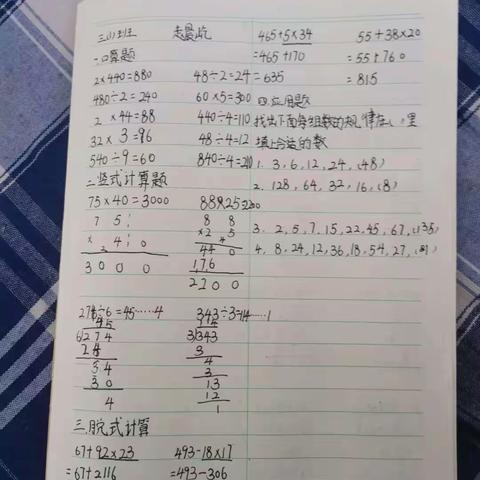 三(1)班 赵晨屹
一.口算题
2×440=880 48÷2=24
480÷2=240 60×5=300
2×44=88 440÷4=110
32×3=96 48÷4=12
540÷9=60 840÷4=210
二.竖式计算题
75×40=3000 88×25=2200
7 5 8 8
× 4 0 ×2 5
3 0 0 0 4 4 0
1 7 6
2 2 0 0
274÷6=45……4 343÷3=114……1
4 5 1 1 4
6 2 7 4 3 3 4 3
2 4 3
3 4 4
3 0 3
4 1 3
1 2
1
三.脱式计算
67+92×23 493-18×17
=67+2116 =493-306
465+5×34 55+38×20
=465+170 =55+760
=635 =815
四.应用题
找出下面每组数的规律在( )里
填上合适的数
1. 3,6,12,24,(48)
2. 128,64,32,16,(8)
3. 2,5,7,15,22,45,67,(135)
4. 8,24,12,36,18,54,27,(81)